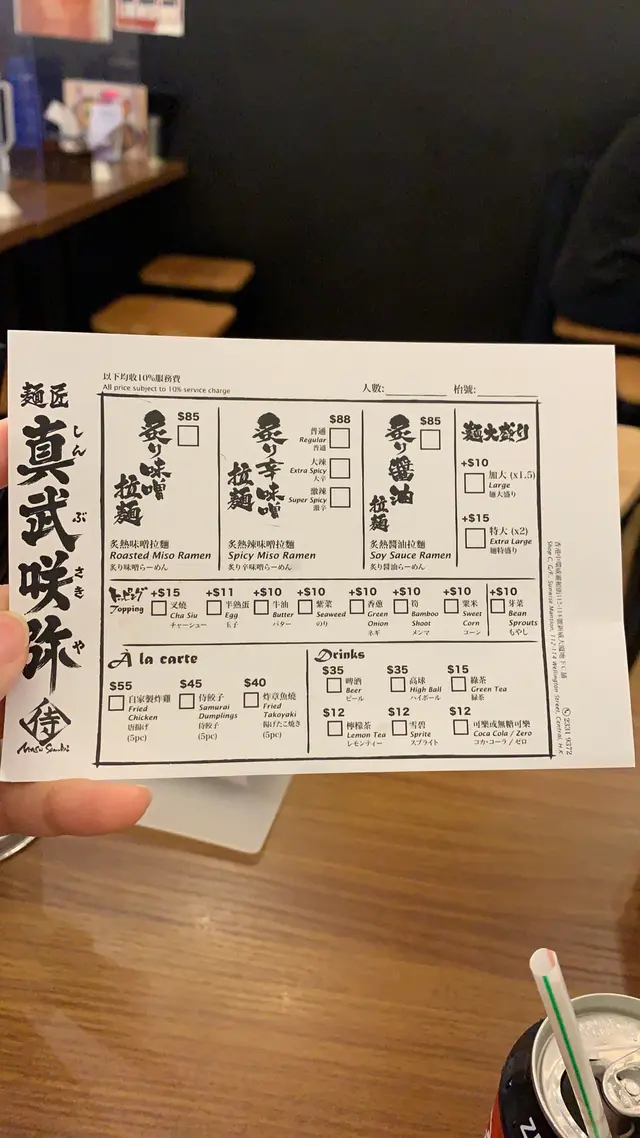 麺匠
真武咲弥
しん
ぶ
さき
や
侍
以下均收10%服務費
All price subject to 10% service charge
人數:
枱號:
炙り味噌
拉麺
$85
炙熱味噌拉麵
Roasted Miso Ramen
炙り味噌らーめん
炙り辛味噌
拉麺
$88
普通
Regular
普通
大辣
Extra Spicy
大辛
激辣
Super Spicy
激辛
炙熱辣味噌拉麵
Spicy Miso Ramen
炙り辛味噌らーめん
炙り醤油
拉麺
$85
炙熱醬油拉麵
Soy Sauce Ramen
炙り醤油らーめん
麺大盛り
+$10
加大 (x1.5)
Large
麺大盛り
+$15
特大 (x2)
Extra Large
麺特盛り
トッピング
Topping
+$15
叉燒
Cha Siu
チャーシュー
+$11
半熟蛋
Egg
玉子
+$10
牛油
Butter
バター
+$10
紫菜
Seaweed
のり
+$10
香蔥
Green
Onion
ネギ
+$10
筍
Bamboo
Shoot
メンマ
+$10
粟米
Sweet
Corn
コーン
+$10
芽菜
Bean
Sprouts
もやし
À la carte
$55
自家製炸雞
Fried
Chicken
唐揚げ
(5pc)
$45
侍餃子
Samurai
Dumplings
侍餃子
(5pc)
$40
炸章魚燒
Fried
Takoyaki
揚げたこ焼き
(5pc)
Drinks
$35
啤酒
Beer
ビール
$35
高球
High Ball
ハイボール
$15
綠茶
Green Tea
緑茶
$12
檸檬茶
Lemon Tea
レモンティー
$12
雪碧
Sprite
スプライト
$12
可樂或無糖可樂
Coca Cola / Zero
コカ·コーラ / ゼロ
Shop C, G/F., Sunwise Mansion, 112-114 Wellington Street, Central, H.K.
2331 9372